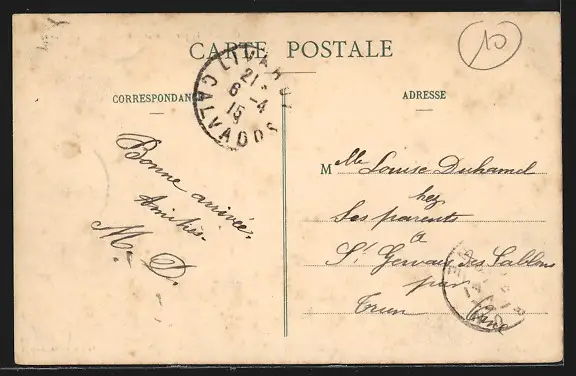 CARTE POSTALE
10
CORRESPONDANCE
ADRESSE
LIVAROT
21
6 -4
15
CALVADOS
Bonne arrivée.
Amitiés.
M. D.
Mlle Louise Duhamel
chez
Ses parents
à
St Gervais des Sablons
par
Trun
Orne